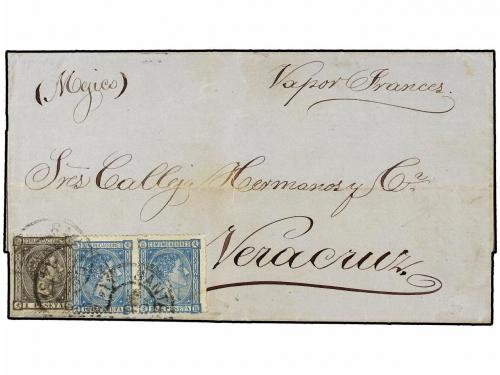 (Mejico)
Vapor Frances.
Sres Calleja Hermanos y Ca.
Veracruz.
COMUNICACIONES
1 PESETA
COMUNICACIONES
COMUNICACIONES